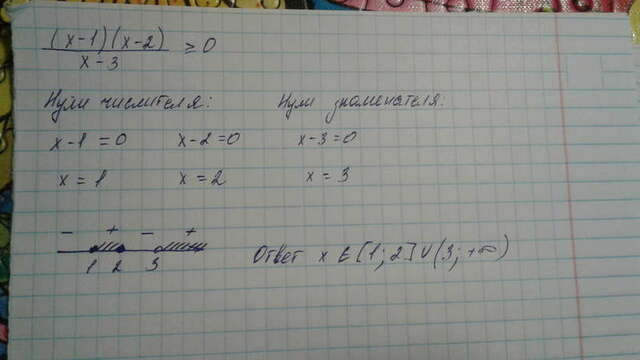 (x-1)(x-2)
x-3
≥ 0
Нули числителя: Нули знаменателя:
x-1=0 x-2=0 x-3=0
x=1 x=2 x=3
- + - +
1 2 3
Ответ x ∈ [1; 2] ∪ (3; +∞)